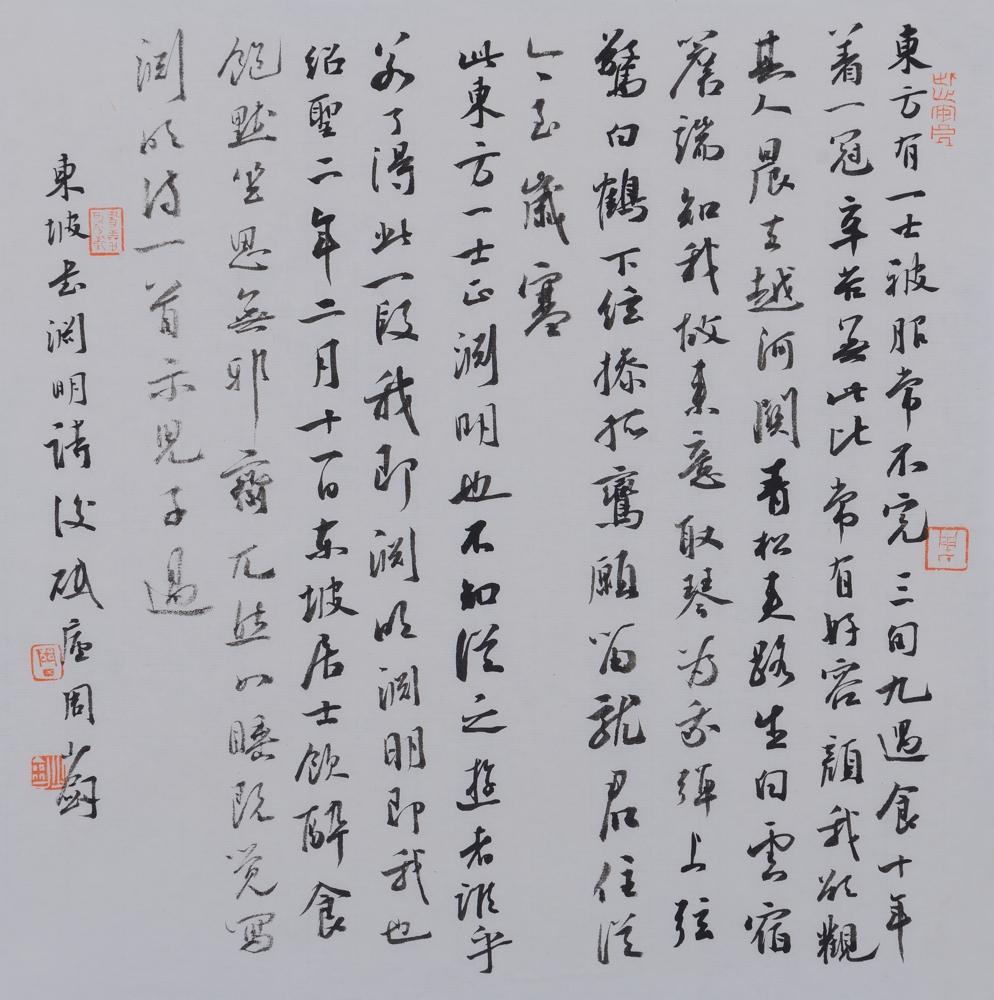 東方有一士被服常不完三旬九遇食十年
着一冠辛苦無此比常有好容顏我欲觀
其人晨去越河關青松夾路生白雲宿
簷端知我故來意取琴為我彈上弦
驚白鶴下弦操孤鸞願留就君住從
今至歲寒
此東方一士正淵明也不知從之遊者誰乎
若了得此一段我即淵明淵明即我也
紹聖二年二月十一日東坡居士飲醉食
飽默坐思無邪齋兀然如睡既覺寫
淵明詩一首示兒子過
東坡書淵明詩後
周